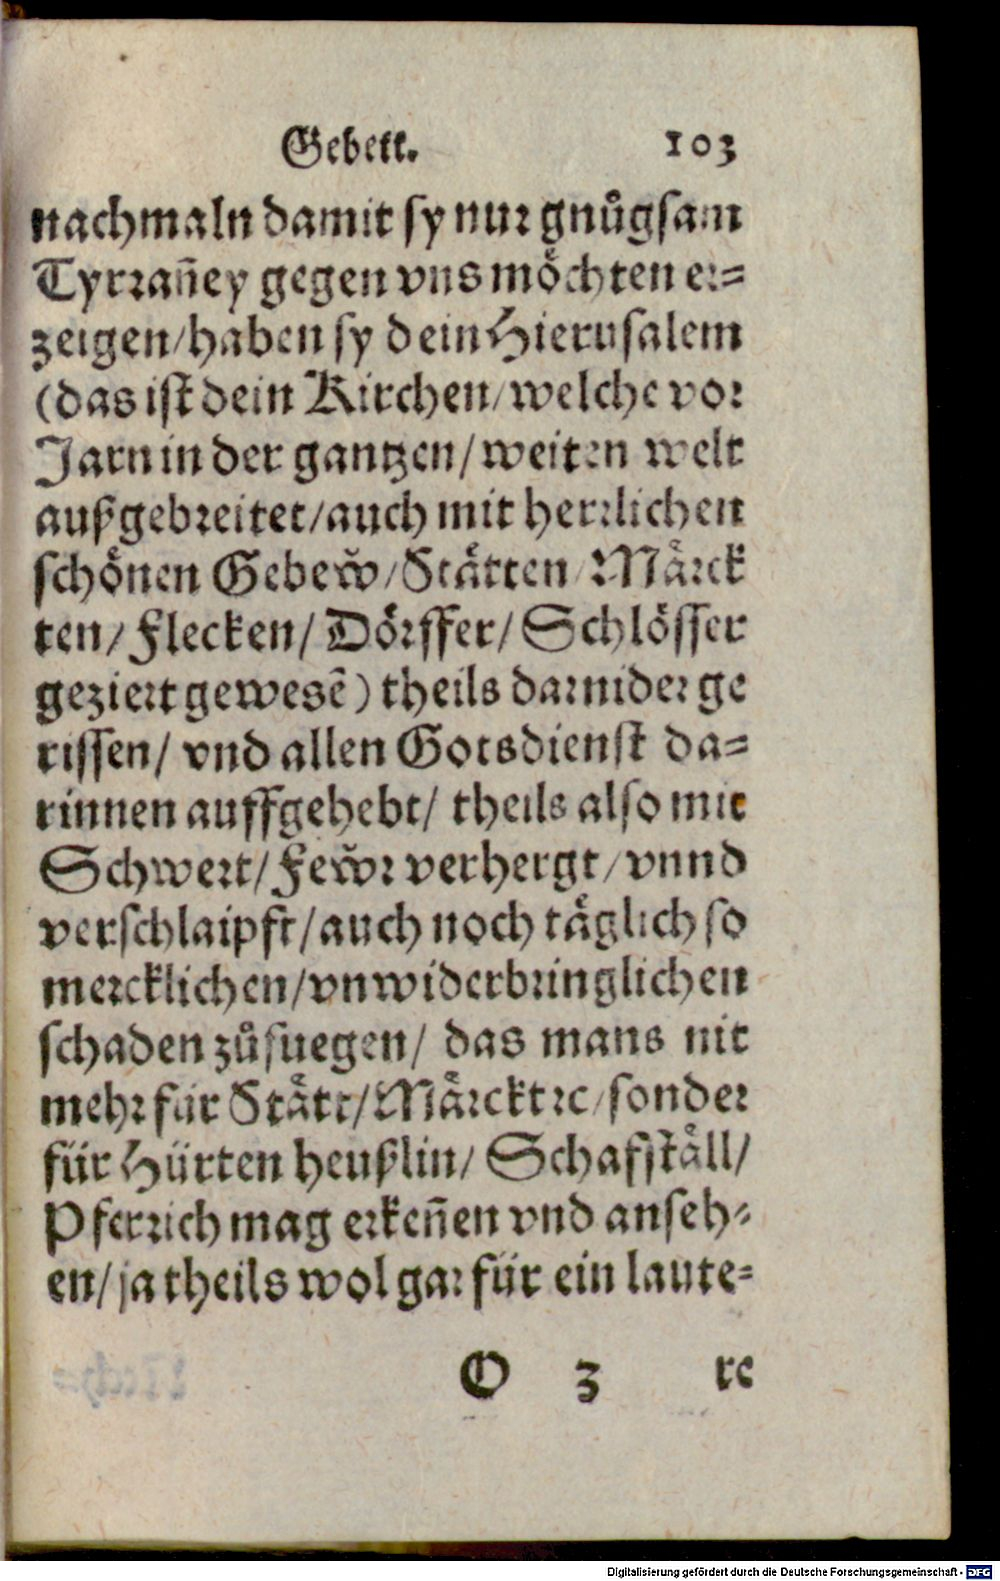 Gebett. 103
nachmaln damit sy nur gnuͦgsam
Tyrrañey gegen vns moͤchten er=
zeigen/haben sy dein Hierusalem
(das ist dein Kirchen/welche vor
Jarn in der gantzen/weiten welt
außgebreitet/auch mit herrlichen
schoͤnen Gebew̆/Staͤtten/Maͤrck
ten/Flecken/Doͤrffer/Schloͤsser
geziert gewesē) theils darnider ge
rissen/ vnd allen Gotsdienst da=
rinnen auffgehebt/ theils also mit
Schwert/Few̆r verhergt/vnnd
verschlaipft/auch noch taͤglich so
mercklichen/vnwiderbringlichen
schaden zuͦfuegen/ das mans nit
mehr für Staͤtt/Maͤrckt ꝛc/sonder
für Hürten heußlin/ Schafstaͤll/
Pferrich mag erkeñen vnd anseh=
en/ja theils wol gar für ein laute=
O 3 re
Digitalisierung gefördert durch die Deutsche Forschungsgemeinschaft - DFG